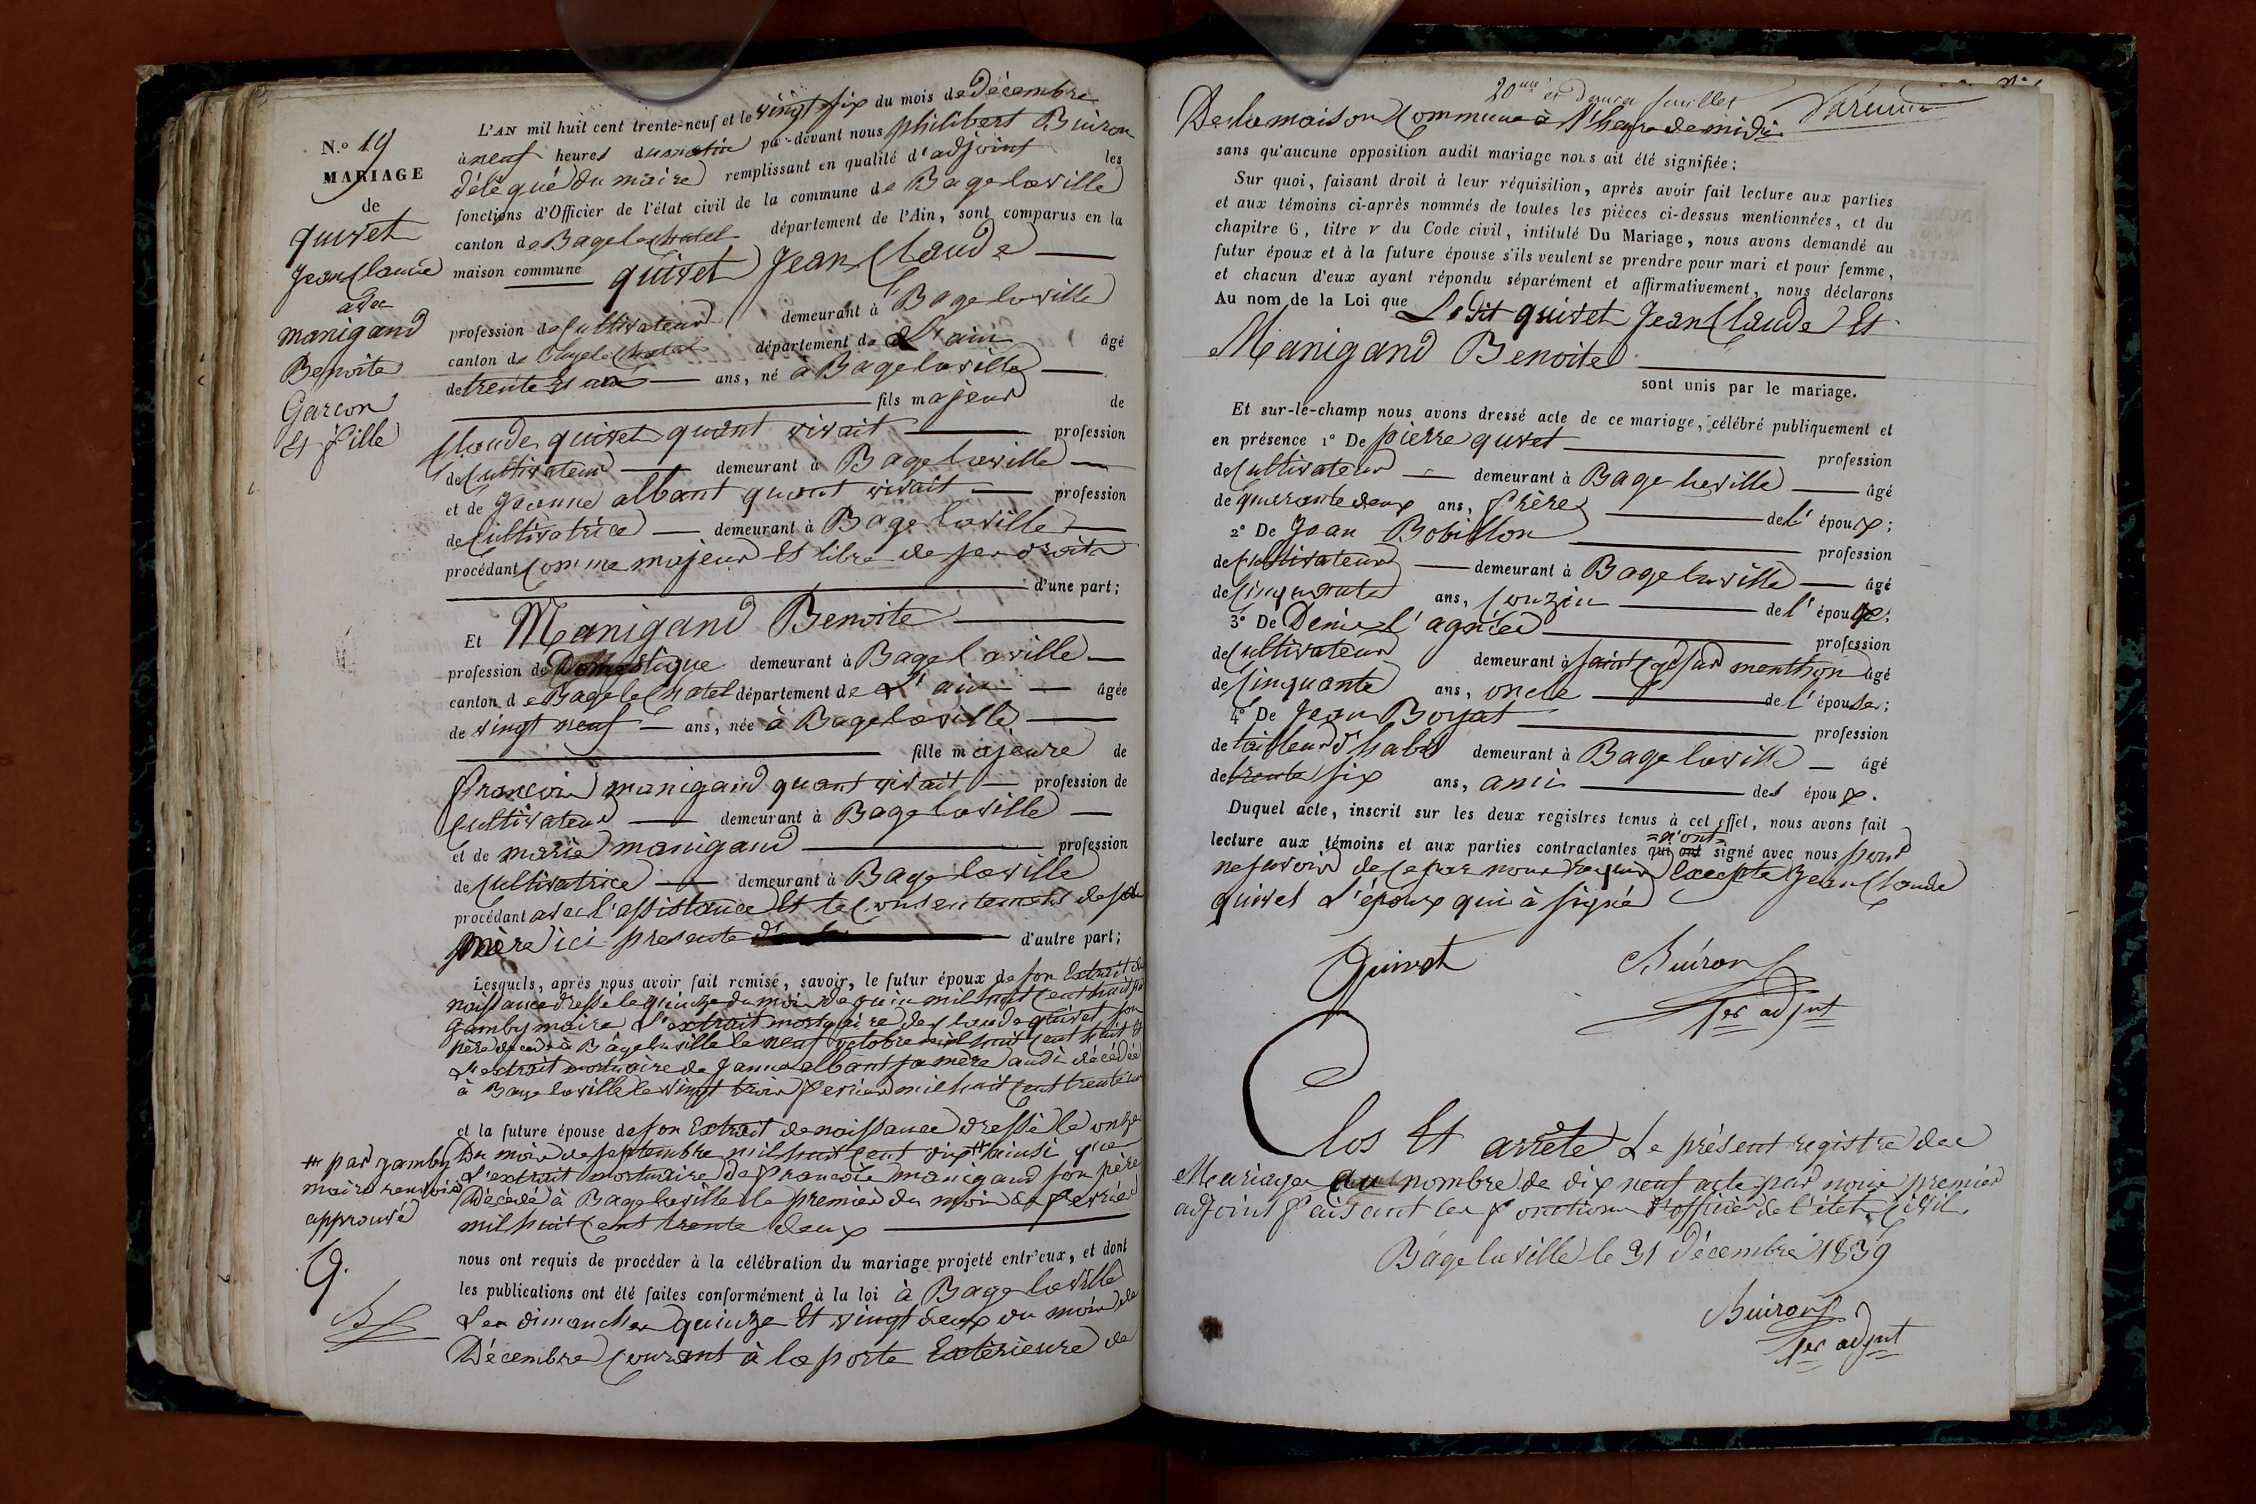 N.° 19
MARIAGE
de
quivet
Jean Claude
avec
manigand
Benoite
Garcon
Et fille
L'AN mil huit cent trente-neuf et le vingt six du mois de Décembre
à neuf heures du matin par-devant nous philibert Buiron
délégué du maire remplissant en qualité d'adjoint les
fonctions d'Officier de l'état civil de la commune de Bage laville
canton de Bage le Chatel département de l'Ain, sont comparus en la
maison commune quivet Jean Claude
profession de Cultivateur demeurant à Bage laville
canton de Bage le Chatel département de L'ain âgé
de trente et un ans, né à Bage laville
fils majeur de
Claude quivet quant vivait profession
de Cultivateur demeurant à Bage laville
et de Jeanne albant quant vivait profession
de Cultivatrice demeurant à Bage laville
procédant Comme majeur Et libre de ses droits
d'une part;
Et Manigand Benoite
profession de Domestique demeurant à Bage laville
canton de Bage le Chatel département de L'ain âgée
de vingt neuf ans, née à Bage laville
fille majeure de
francois manigand quant vivait profession de
Cultivateur demeurant à Bage laville
et de marie manigand profession
de Cultivatrice demeurant à Bage laville
procédant avec l'assistance Et le Consentement de sa
mère ici presente d'autre part;
Lesquels, après nous avoir fait remise, savoir, le futur époux de son Extrait de
naissance dressé le quinze du mois de juin mil huit Cent huit par
Gamby maire L'extrait mortuaire de Claude quivet son
père décédé à Bage laville le neuf octobre mil huit Cent huit Et
L'extrait mortuaire de Jeanne albant sa mère aussi décédée
à Bage laville le vingt trois fevrier mil huit Cent trente
et la future épouse de son Extrait de naissance dressé le onze
Du mois de septembre mil huit Cent dix # ainsi que
L'extrait mortuaire de francois manigand son père
Décédé à Bage laville le premier du mois de fevrier
mil huit Cent trente deux
# par gamby
maire renvoi
approuvé
Q.
B
nous ont requis de procéder à la célébration du mariage projeté entr'eux, et dont
les publications ont été faites conformément à la loi à Bage laville
Les dimanches quinze Et vingt deux du mois de
Décembre Courant à la porte Extérieure de
20me et dernier feuillet
De la maison Commune à l'heure de midi
sans qu'aucune opposition audit mariage nous ait été signifiée:
Sur quoi, faisant droit à leur réquisition, après avoir fait lecture aux parties
et aux témoins ci-après nommés de toutes les pièces ci-dessus mentionnées, et du
chapitre 6, titre v du Code civil, intitulé Du Mariage, nous avons demandé au
futur époux et à la future épouse s'ils veulent se prendre pour mari et pour femme,
et chacun d'eux ayant répondu séparément et affirmativement, nous déclarons
Au nom de la Loi que Le dit quivet Jean Claude Et
Manigand Benoite
sont unis par le mariage.
Et sur-le-champ nous avons dressé acte de ce mariage, célébré publiquement et
en présence 1° De pierre quivet profession
de Cultivateur demeurant à Bage laville âgé
de quarante deux ans, frère de l'époux;
2° De Jean Bobillon profession
de Cultivateur demeurant à Bage laville âgé
de Cinquante ans, Couzin de l'époux;
3° De Denis l'agnier profession
de Cultivateur demeurant à saint Cyr sur menthon âgé
de Cinquante ans, oncle de l'épouse;
4° De Jean Boyat profession
de tailleur d'habit demeurant à Bage laville âgé
de trente six ans, ami des époux.
Duquel acte, inscrit sur les deux registres tenus à cet effet, nous avons fait
lecture aux témoins et aux parties contractantes qui ont =n'ont= signé avec nous pour
ne savoir de ce par nous requis Excepté Jean Claude
quivet L'époux qui à signé
Quivet Buiron
1er adjnt
Clos Et arrêté Le présent registre des
Mariages au nombre de dix neuf acte par nous premier
adjoint faisant les fonctions d'officier de l'état Civil.
Bage laville le 31 Décembre 1839
Buiron
1er adjnt